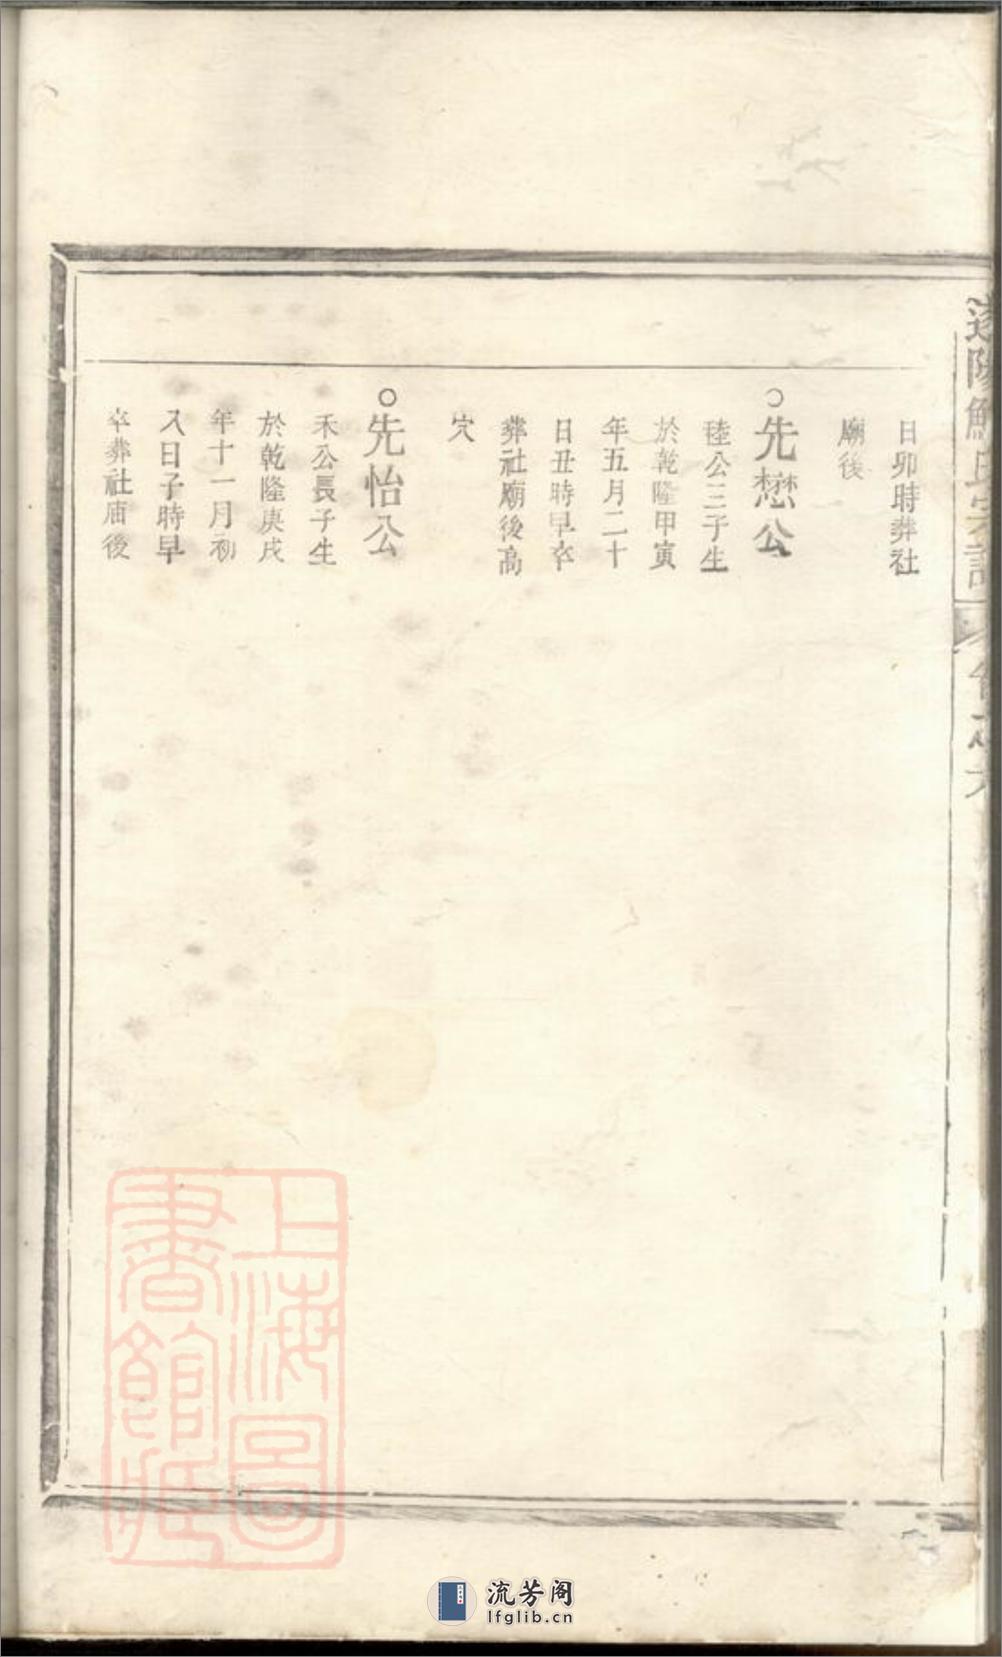 氏宗譜
日卯時葬社
廟後
○先懋公
稑公三子生
於乾隆甲寅
年五月二十
日丑時早卒
葬社廟後高
穴
○先怡公
禾公長子生
於乾隆庚戌
年十一月初
入日子時早
卒葬社庙後
上海圖
書館藏
流芳阁
lfglib.cn